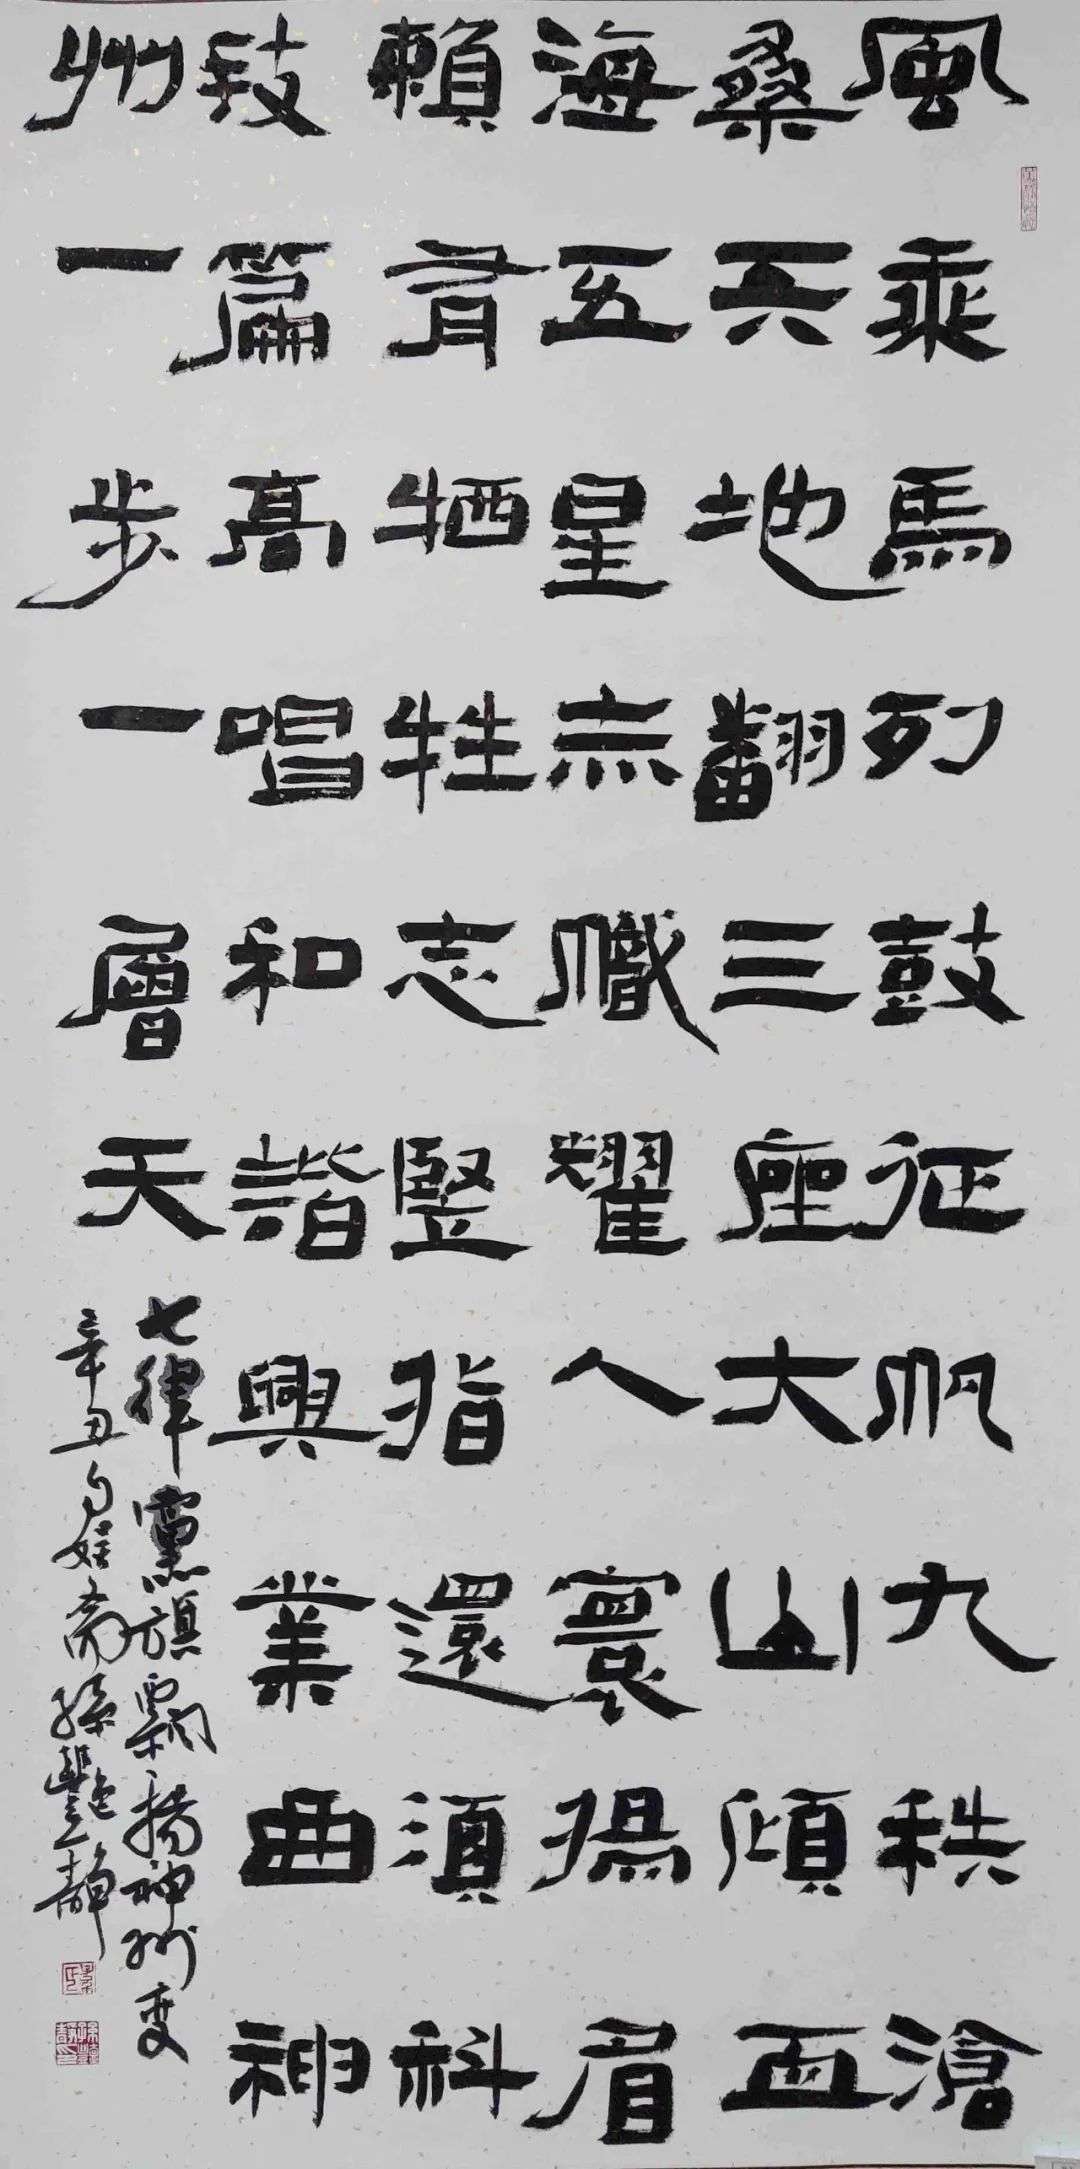 風乘馬列鼓征帆九秩滄
桑天地翻三座大山傾血
海五星赤幟耀人寰揚眉
賴有牺牲志竪指還須科
技篇高唱和諧興業曲神
州一步一層天
七律黨旗飄揚神州變
辛丑 斋孫艷靜